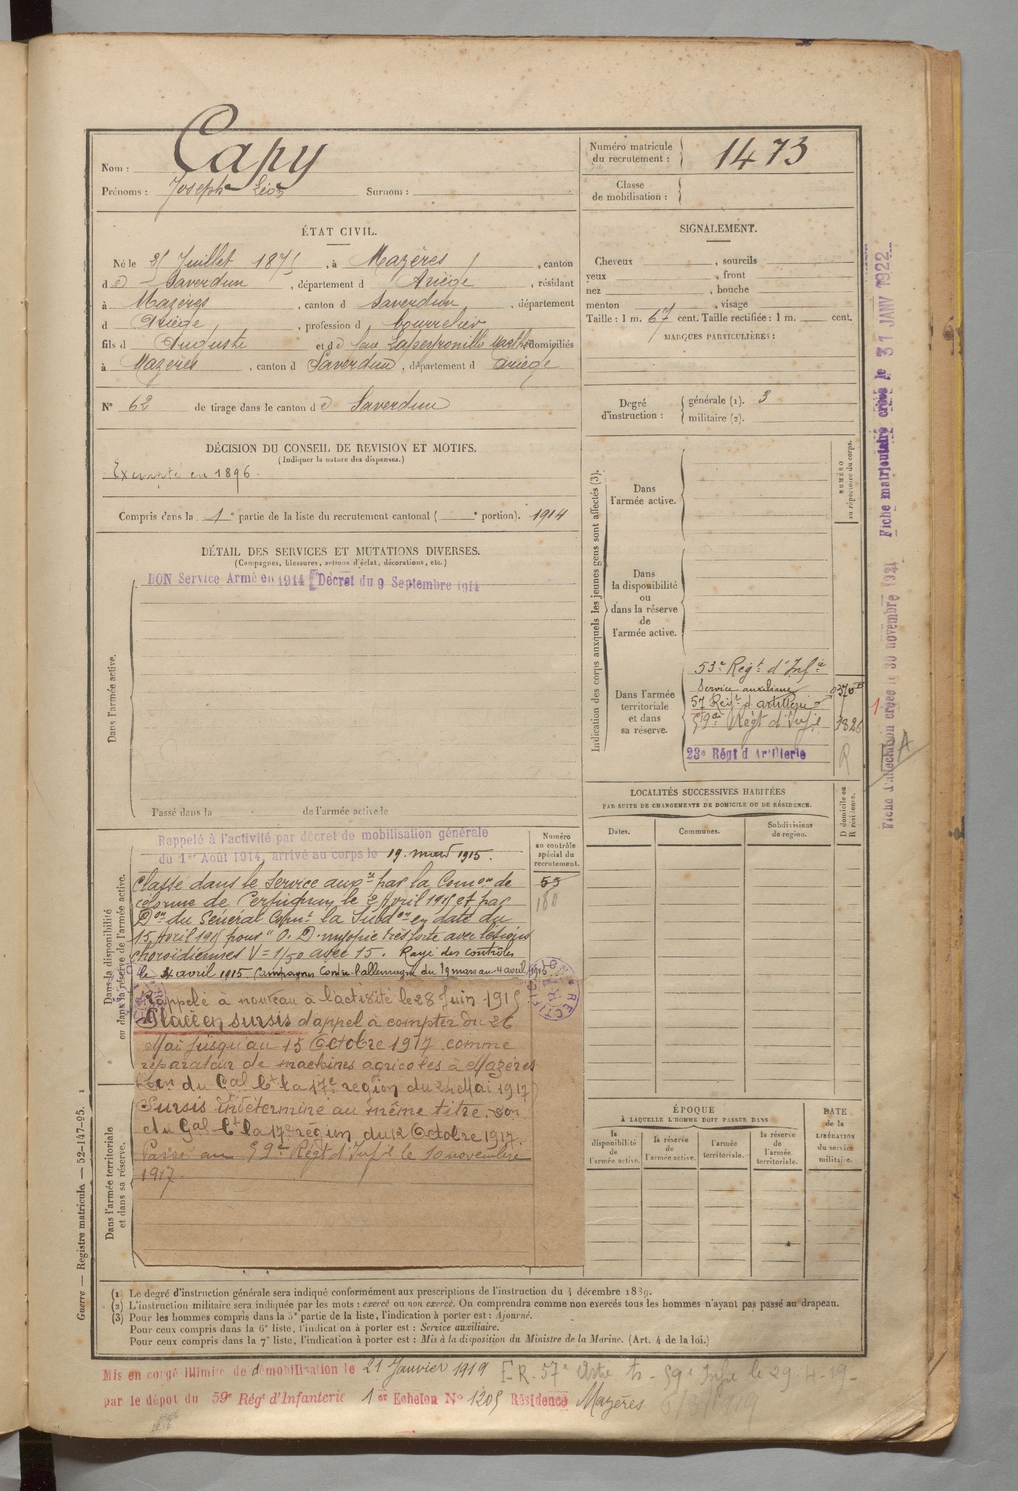 Nom : Capy
Prénoms : Joseph Léon Surnom :
Numéro matricule du recrutement : 1473
Classe de mobilisation :
ÉTAT CIVIL.
Né le 25 Juillet 1875, à Mazères, canton
de Saverdun, département d Ariège, résidant
à Mazères, canton d Saverdun, département
d Ariège, profession d bourrelier
fils d Auguste et de domiciliés
à Mazères, canton d Saverdun, département d Ariège
N° 62 de tirage dans le canton de Saverdun
SIGNALEMENT.
Cheveux , sourcils
yeux , front
nez , bouche
menton , visage
Taille : 1 m. 67 cent. Taille rectifiée : 1 m. cent.
MARQUES PARTICULIÈRES :
Degré d'instruction : générale (1). 3
militaire (2).
DÉCISION DU CONSEIL DE REVISION ET MOTIFS.
(Indiquer la nature des dispenses.)
Exempté en 1896.
Compris dans la 1e partie de la liste du recrutement cantonal ( e portion). 1914
DÉTAIL DES SERVICES ET MUTATIONS DIVERSES.
(Campagnes, blessures, actions d'éclat, décorations, etc.)
BON Service Armé en 1914 [Décret du 9 Septembre 1914
Dans l'armée active.
Passé dans la de l'armée active le
Indication des corps auxquels les jeunes gens sont affectés (3).
NUMÉRO au répertoire du corps.
Dans l'armée active.
Dans la disponibilité ou dans la réserve de l'armée active.
Dans l'armée territoriale et dans sa réserve.
53e Régt d'Infie
Service auxiliaire
57 Régt d'artillerie
59e Régt d'Infie
23e Régt d'Artillerie
LOCALITÉS SUCCESSIVES HABITÉES
PAR SUITE DE CHANGEMENTS DE DOMICILE OU DE RÉSIDENCE.
D domicile ou R résidence.
Dates. Communes. Subdivisions de région.
Dans la disponibilité ou dans la réserve de l'armée active.
Rappelé à l'activité par décret de mobilisation générale
du 1er Août 1914, arrivé au corps le 19 mars 1915.
Numéro au contrôle spécial du recrutement.
55
180
Classé dans le Service auxre par la Comon de
réforme de Perpignan le 2 Avril 1915 et par
Don du Général Comt la Subdon en date du
15 Avril 1915 pour "O. D. myopie très forte avec lésions
choroïdiennes V = 1/50 avec 15. Rayé des contrôles
le 4 avril 1915 Campagnes Contre l'allemagne du 19 mars au 4 avril 1915
Rappelé à nouveau à l'activité le 28 Juin 1915
Placé en sursis d'appel à compter du 26
Mai jusqu'au 15 Octobre 1917 comme
réparateur de machines agricoles à Mazères
Don du Gal Ct la 17e région du 24 Mai 1917
Sursis indéterminé au même titre. Don
du Gal Ct la 17e région du 12 Octobre 1917.
Passé au 59e Régt d'Infie le 10 novembre
1917.
Dans l'armée territoriale et dans sa réserve.
ÉPOQUE
À LAQUELLE L'HOMME DOIT PASSER DANS
DATE de la LIBÉRATION du service militaire.
la disponibilité de l'armée active. la réserve de l'armée active. l'armée territoriale. la réserve de l'armée territoriale.
(1) Le degré d'instruction générale sera indiqué conformément aux prescriptions de l'instruction du 4 décembre 1889.
(2) L'instruction militaire sera indiquée par les mots : exercé ou non exercé. On comprendra comme non exercés tous les hommes n'ayant pas passé au drapeau.
(3) Pour les hommes compris dans la 5e partie de la liste, l'indication à porter est : Ajourné.
Pour ceux compris dans la 6e liste, l'indication à porter est : Service auxiliaire.
Pour ceux compris dans la 7e liste, l'indication à porter est : Mis à la disposition du Ministre de la Marine. (Art. 4 de la loi.)
Guerre — Registre matricule. — 52-147-95.
Mis en congé illimité de démobilisation le 21 Janvier 1919
par le dépôt du 59e Régt d'Infanterie 1er Echelon N° 1205 Résidence Mazères
Fiche matriculaire créée le 31 JANV 1922
Fiche d'affectation créée le 30 novembre 1921